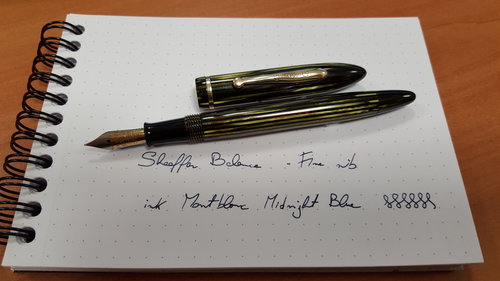 Sheaffer Balance - Fine nib
ink Montblanc Midnight Blue